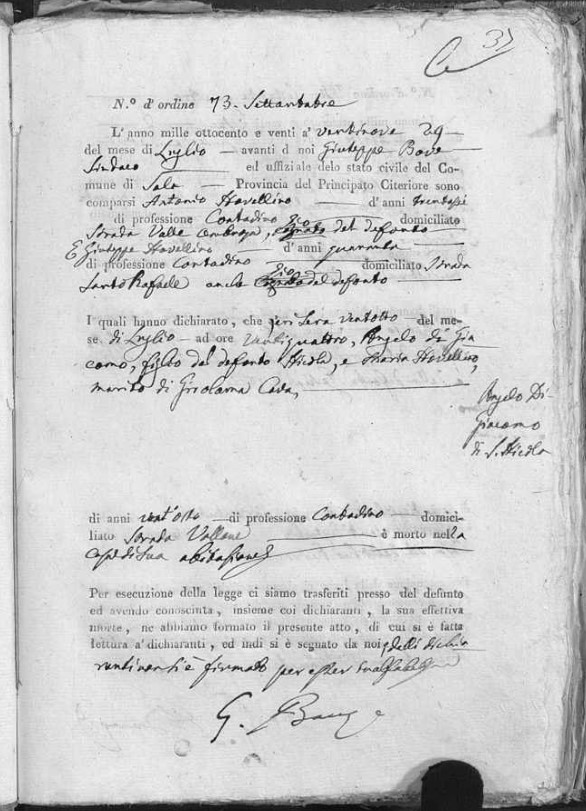 37
N.º d'ordine 73. Settantatre
L'anno mille ottocento e venti a' ventinove 29
del mese di Luglio avanti d noi Giuseppe Bove
Sindaco ed uffiziale delo stato civile del Co-
mune di Sala Provincia del Principato Citeriore sono
comparsi Antonio d' anni
di professione Contadino domiciliato
Strada Valle , Zio del defonto
E Giuseppe d' anni quaranta
di professione Contadino domiciliato Strada
Santo Rafaele anche Zio del defonto
I quali hanno dichiarato, che jeri sera ventotto del me-
se di Luglio ad ore ventiquattro, Angelo di Gia
como, figlio del defonto Nicola, e Maria
marito di Girolama
Angelo Di
Giacomo
di S. Nicola
di anni vent'otto di professione Contadino domici-
liato Strada Vallone è morto nella
casa di sua abitazione
Per esecuzione della legge ci siamo trasferiti presso del defunto
ed avendo conosciuta, insieme coi dichiaranti, la sua effettiva
morte, ne abbiamo formato il presente atto, di cui si è fatta
lettura a' dichiaranti, ed indi si è segnato da noi,
firmato per esser
G. Bove